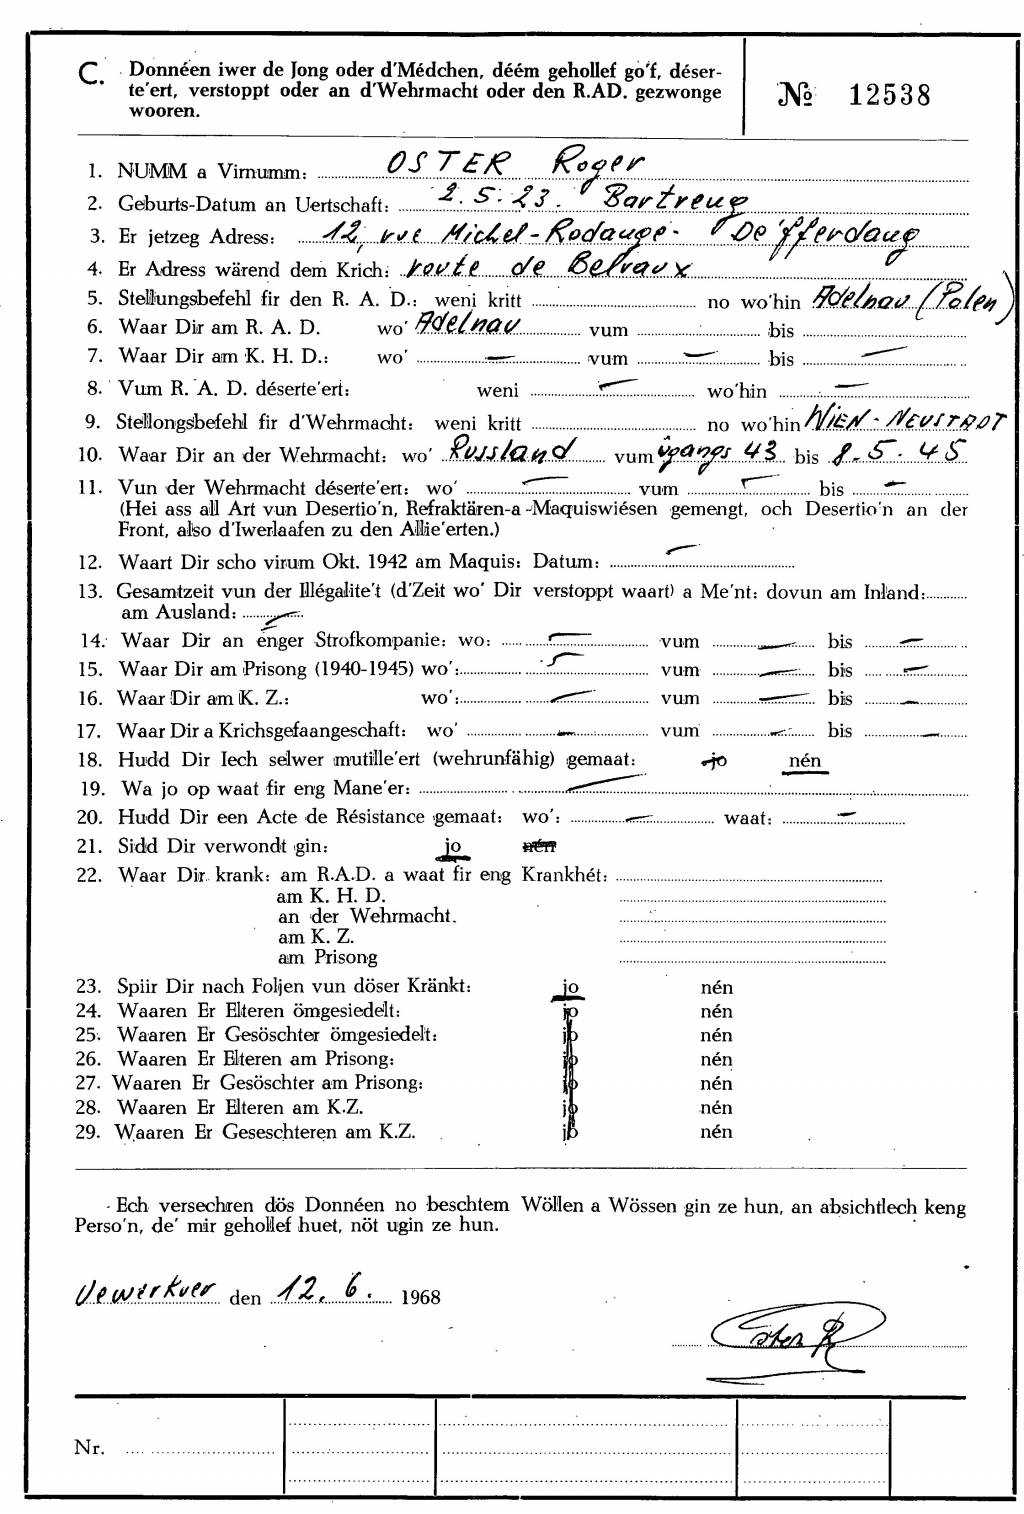 C. Donnéen iwer de Jong oder d'Médchen, déém gehollef go'f, déser-
te'ert, verstoppt oder an d'Wehrmacht oder den R.AD. gezwonge
wooren.
№ 12538
1. NUMM a Virnumm: OSTER Roger
2. Geburts-Datum an Uertschaft: 2.5.23. Bartreng
3. Er jetzeg Adress: 12, rue Michel-Rodange- De'fferdang
4. Er Adress wärend dem Krich: route de Belvaux
5. Stellungsbefehl fir den R. A. D.: weni kritt no wo'hin Adelnau (Polen)
6. Waar Dir am R. A. D. wo' Adelnau vum bis
7. Waar Dir am K. H. D.: wo' — vum — bis —
8. Vum R. A. D. déserte'ert: weni — wo'hin —
9. Stellongsbefehl fir d'Wehrmacht: weni kritt no wo'hin WIEN-NEUSTADT
10. Waar Dir an der Wehrmacht: wo' Russland vum 43 bis 8.5.45
11. Vun der Wehrmacht déserte'ert: wo' — vum — bis —
(Hei ass all Art vun Desertio'n, Refraktären-a-Maquiswiésen gemengt, och Desertio'n an der
Front, also d'Iwerlaafen zu den Allie'erten.)
12. Waart Dir scho virum Okt. 1942 am Maquis: Datum: —
13. Gesamtzeit vun der Illégalite't (d'Zeit wo' Dir verstoppt waart) a Me'nt: dovun am Inland:
am Ausland: —
14. Waar Dir an enger Strofkompanie: wo: — vum — bis —
15. Waar Dir am Prisong (1940-1945) wo': — vum — bis —
16. Waar Dir am K. Z.: wo': — vum — bis —
17. Waar Dir a Krichsgefaangeschaft: wo' — vum — bis —
18. Hudd Dir Iech selwer mutille'ert (wehrunfähig) gemaat: jo nén
19. Wa jo op waat fir eng Mane'er: —
20. Hudd Dir een Acte de Résistance gemaat: wo': — waat: —
21. Sidd Dir verwondt gin: jo nén
22. Waar Dir krank: am R.A.D. a waat fir eng Krankhét:
am K. H. D.
an der Wehrmacht.
am K. Z.
am Prisong
23. Spiir Dir nach Foljen vun döser Kränkt: jo nén
24. Waaren Er Elteren ömgesiedelt: jo nén
25. Waaren Er Gesöschter ömgesiedelt: jo nén
26. Waaren Er Elteren am Prisong: jo nén
27. Waaren Er Gesöschter am Prisong: jo nén
28. Waaren Er Elteren am K.Z. jo nén
29. Waaren Er Geseschteren am K.Z. jo nén
Ech versechren dös Donnéen no beschtem Wöllen a Wössen gin ze hun, an absichtlech keng
Perso'n, de' mir gehollef huet, nöt ugin ze hun.
den 12. 6. 1968
Oster R
Nr.